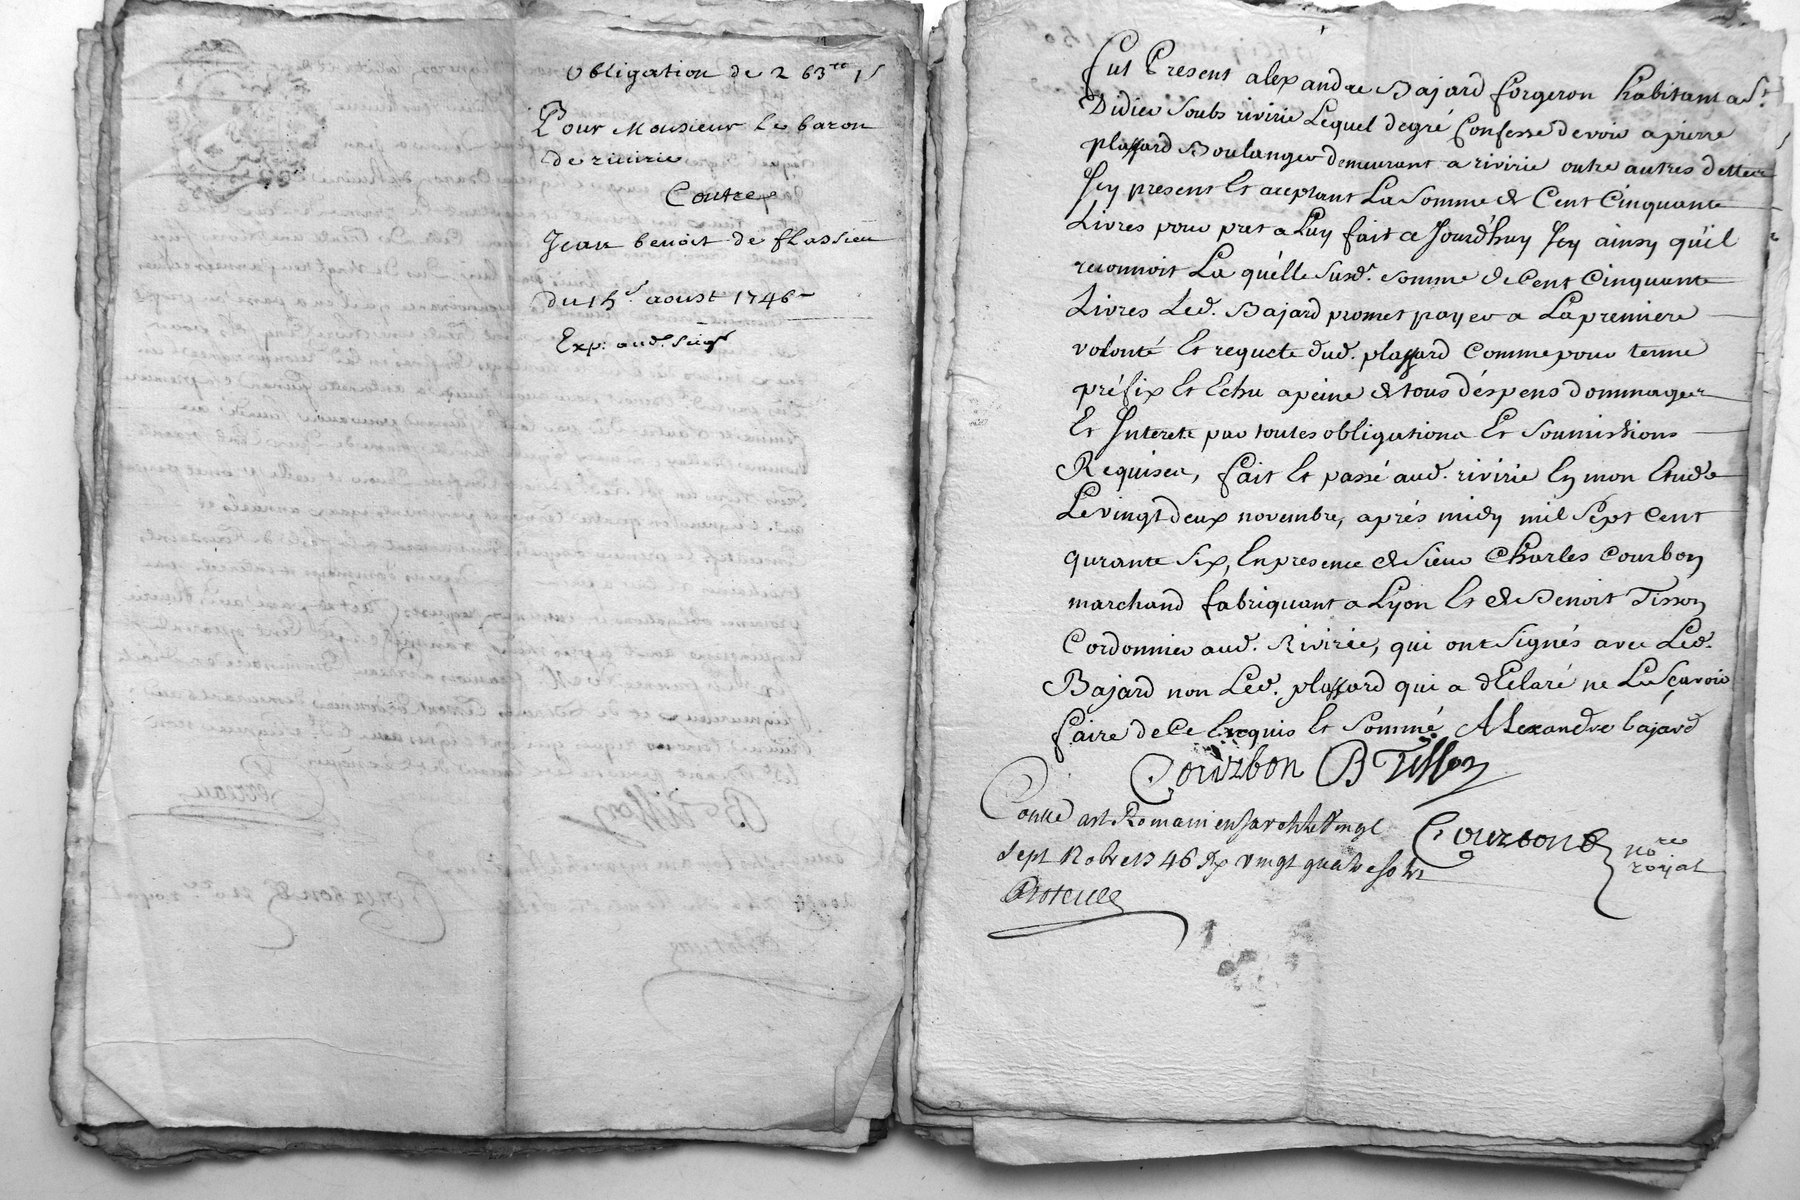 Obligation de 263
Pour Monsieur le baron
de riuirie
Contre
Jean benoit de flassieu
du 15e aoust 1746
Exp: aud. sieur
fut Present alexandre Bajard forgeron habitant a St.
Didier soubs rivirie Lequel degré Confesse devoir a pierre
plassard Boulanger demeurant a rivirie outre autres dettes
Icy present Et aceptant La Somme de Cent Cinquante
Livres pour pret a Luy fait ce Jourd'huy Icy ainsy qu'il
reconnoit La quélle susde. somme de Cent Cinquante
Livres Led. Bajard promet payer a La premiere
volonté Et requete dud. plassard Comme pour terme
préfix Et Echu a peine de tous déspens dommages
Et Interets par toutes obligations Et Soumissions
Requises, fait Et passé aud. rivirie En mon Etude
Le vingt deux novembre, aprés midy mil Sept Cent
qurante Six, En presence de Sieur Charles Courbon
marchand fabriquant a Lyon Et de Benoit Tisson
Cordonnier aud. Rivirie, qui ont Signés avec Led.
Bajard non Led. plassard qui a déClaré ne Le Sçavoir
faire de Ce Enquis Et Sommé Alexandre bajard
Courbon B Tisson
Conllé a St Romain en Jarest le Vingt
sept Nobre 1746 Rx vingt quatre sols
Courbon no.re
royal